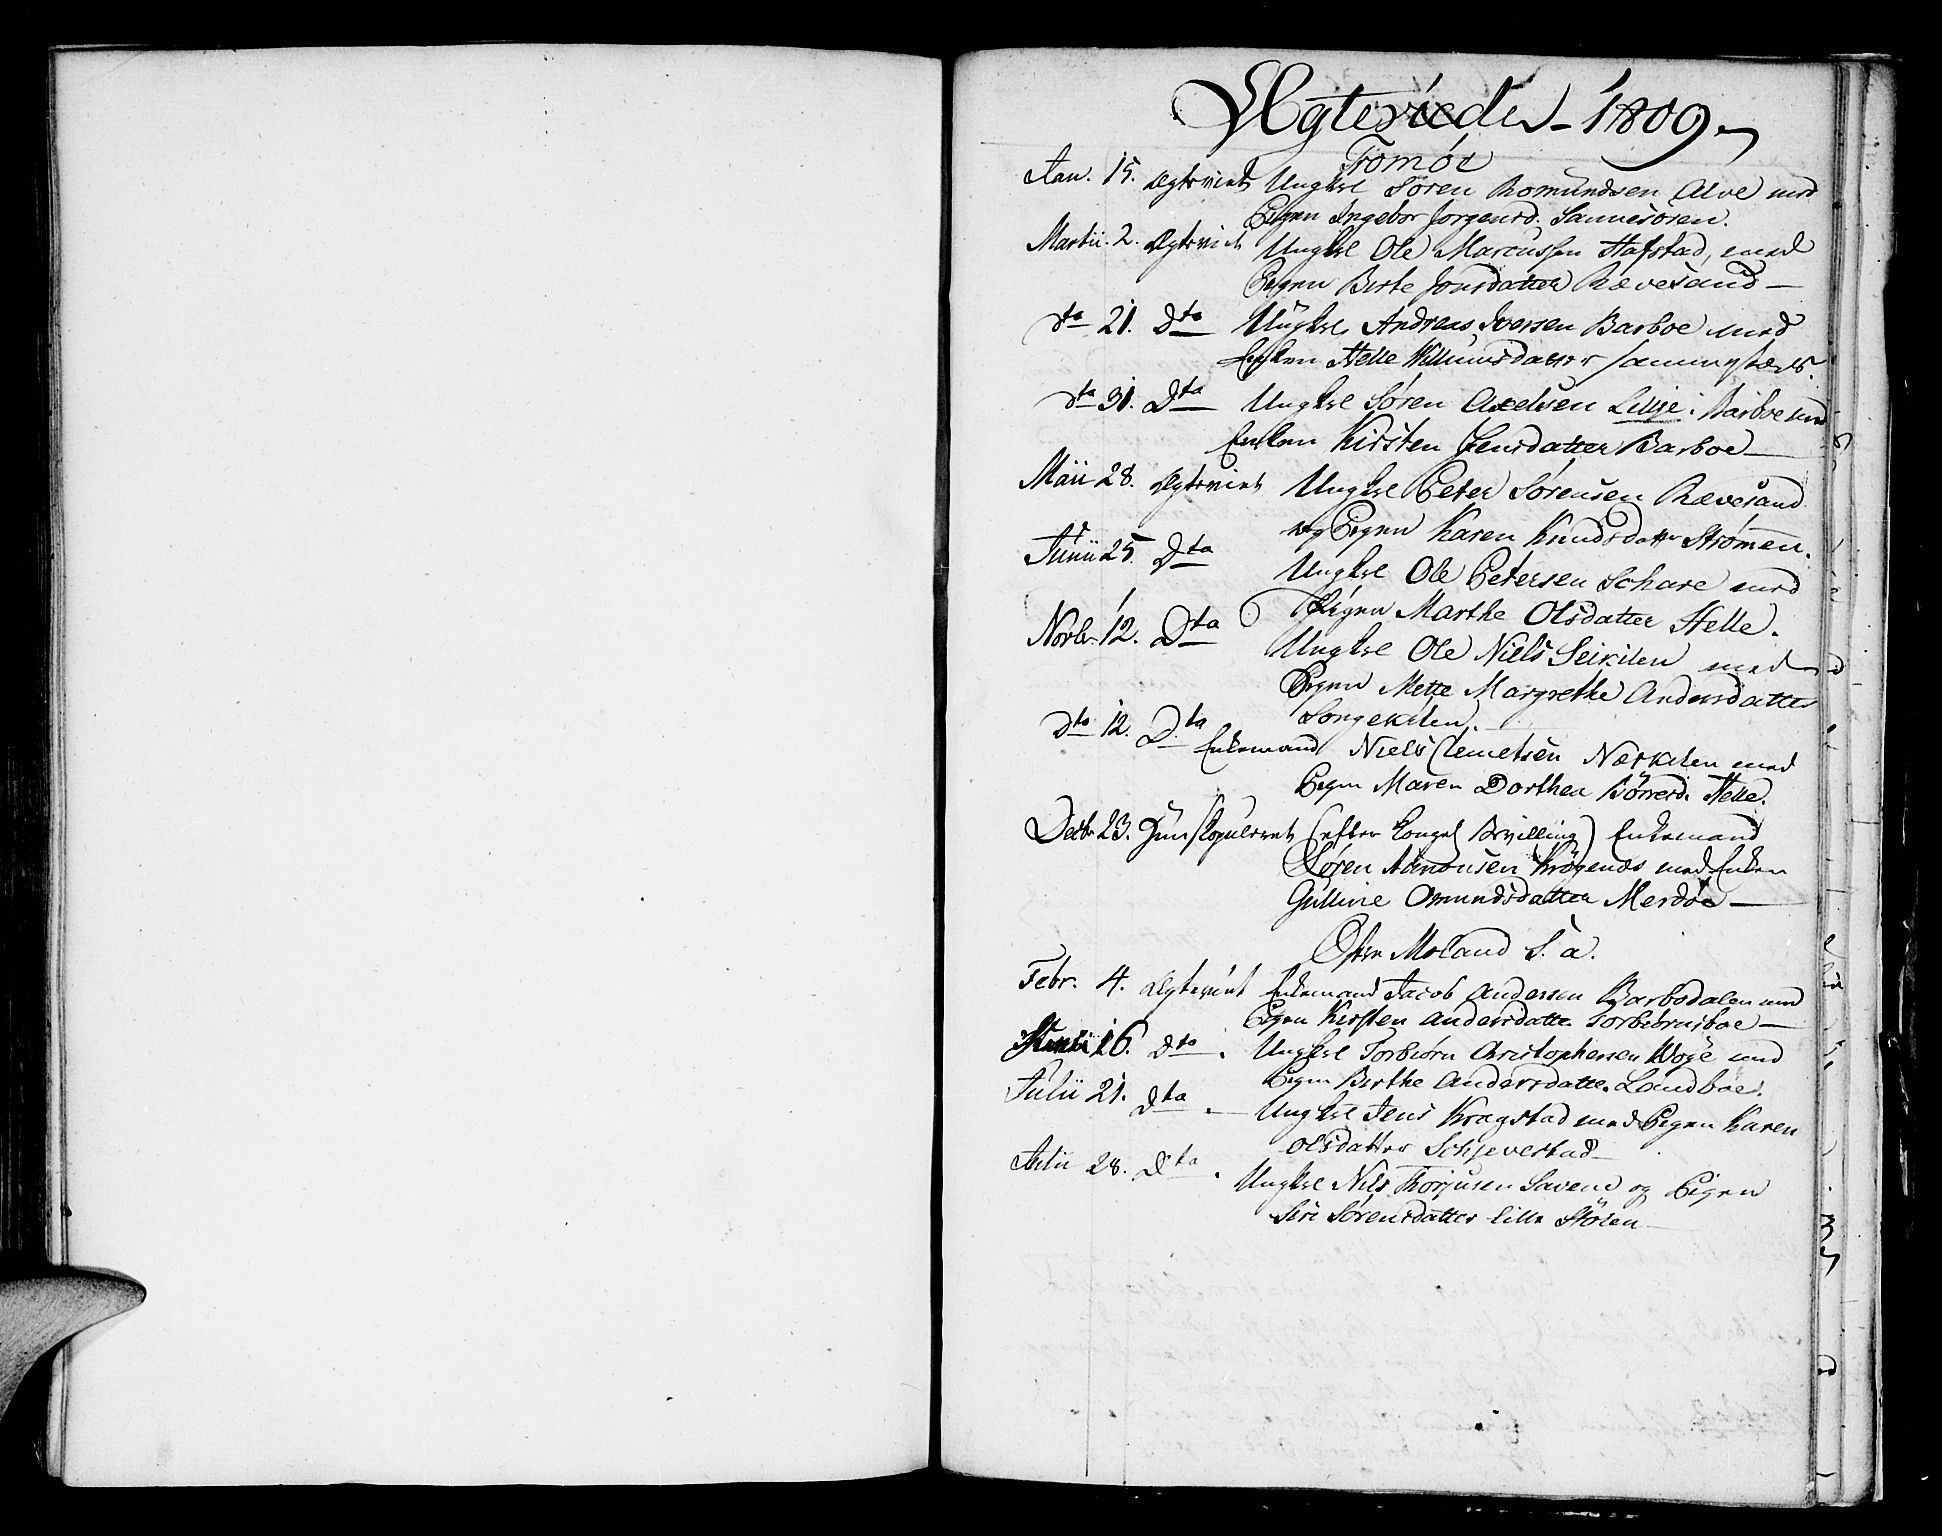 Ægteviede 1809.
Tromøe
Jan. 15. Ægteviet Ungkrl Søren Romundsen Alve med
Pigen Ingebor Jørgensd. Sannesøren.
Martii. 2. Ægteviet Ungkrl Ole Marcussen Hafstad, med
Pigen Birte Jonsdatter Rævesand
dto 21. Dto Ungkrl Andreas Iversen Barboe med
Enken Helle Willumsdatter sammesteds.
dto 31. Dto Ungkrl Søren Axelsen Lillje i Barboe med
Enken Kirsten Jensdatter Barboe
Maii 28. Ægteviet Ungkrl Peter Sørensen Rævesand
og Pigen Karen Knudsdatter Strømen.
Junii 25. Dto Ungkrl Ole Petersen Schare med
Pigen Marthe Olsdatter Helle.
Novbr. 12. Dto Ungkrl Ole Niels Seikilen med
Pigen Mette Margrethe Andersdatter
Songekilen.
dto 12. Dto Enkemand Niels Clemetsen Nærkilen med
Pigen Maren Dorthea Børresd. Helle.
Decbr 23. Copuleret (efter Kongel Bevilling) Enkemand
Søren Krøgenes med Enken
Gulline Omundsdatter Merdøe
Øster Moland S. a.
Febr. 4. Ægteviet Enkemand Jacob Andersen Barbodalen med
Pigen Kirsten Andersdatter Torbiørnsboe
16. dto. Ungkrl Torbiørn Christophersen Woge med
Pigen Birthe Andersdatter Landboe.
Julii 21. dto. Ungkrl Jens Kragstad med Pigen Karen
Olsdatter Schjeverstad
Julii 28. dto. Ungkrl Nils Thorjusen Savene og Pigen
Siri Sørensdatter Lille Stølen